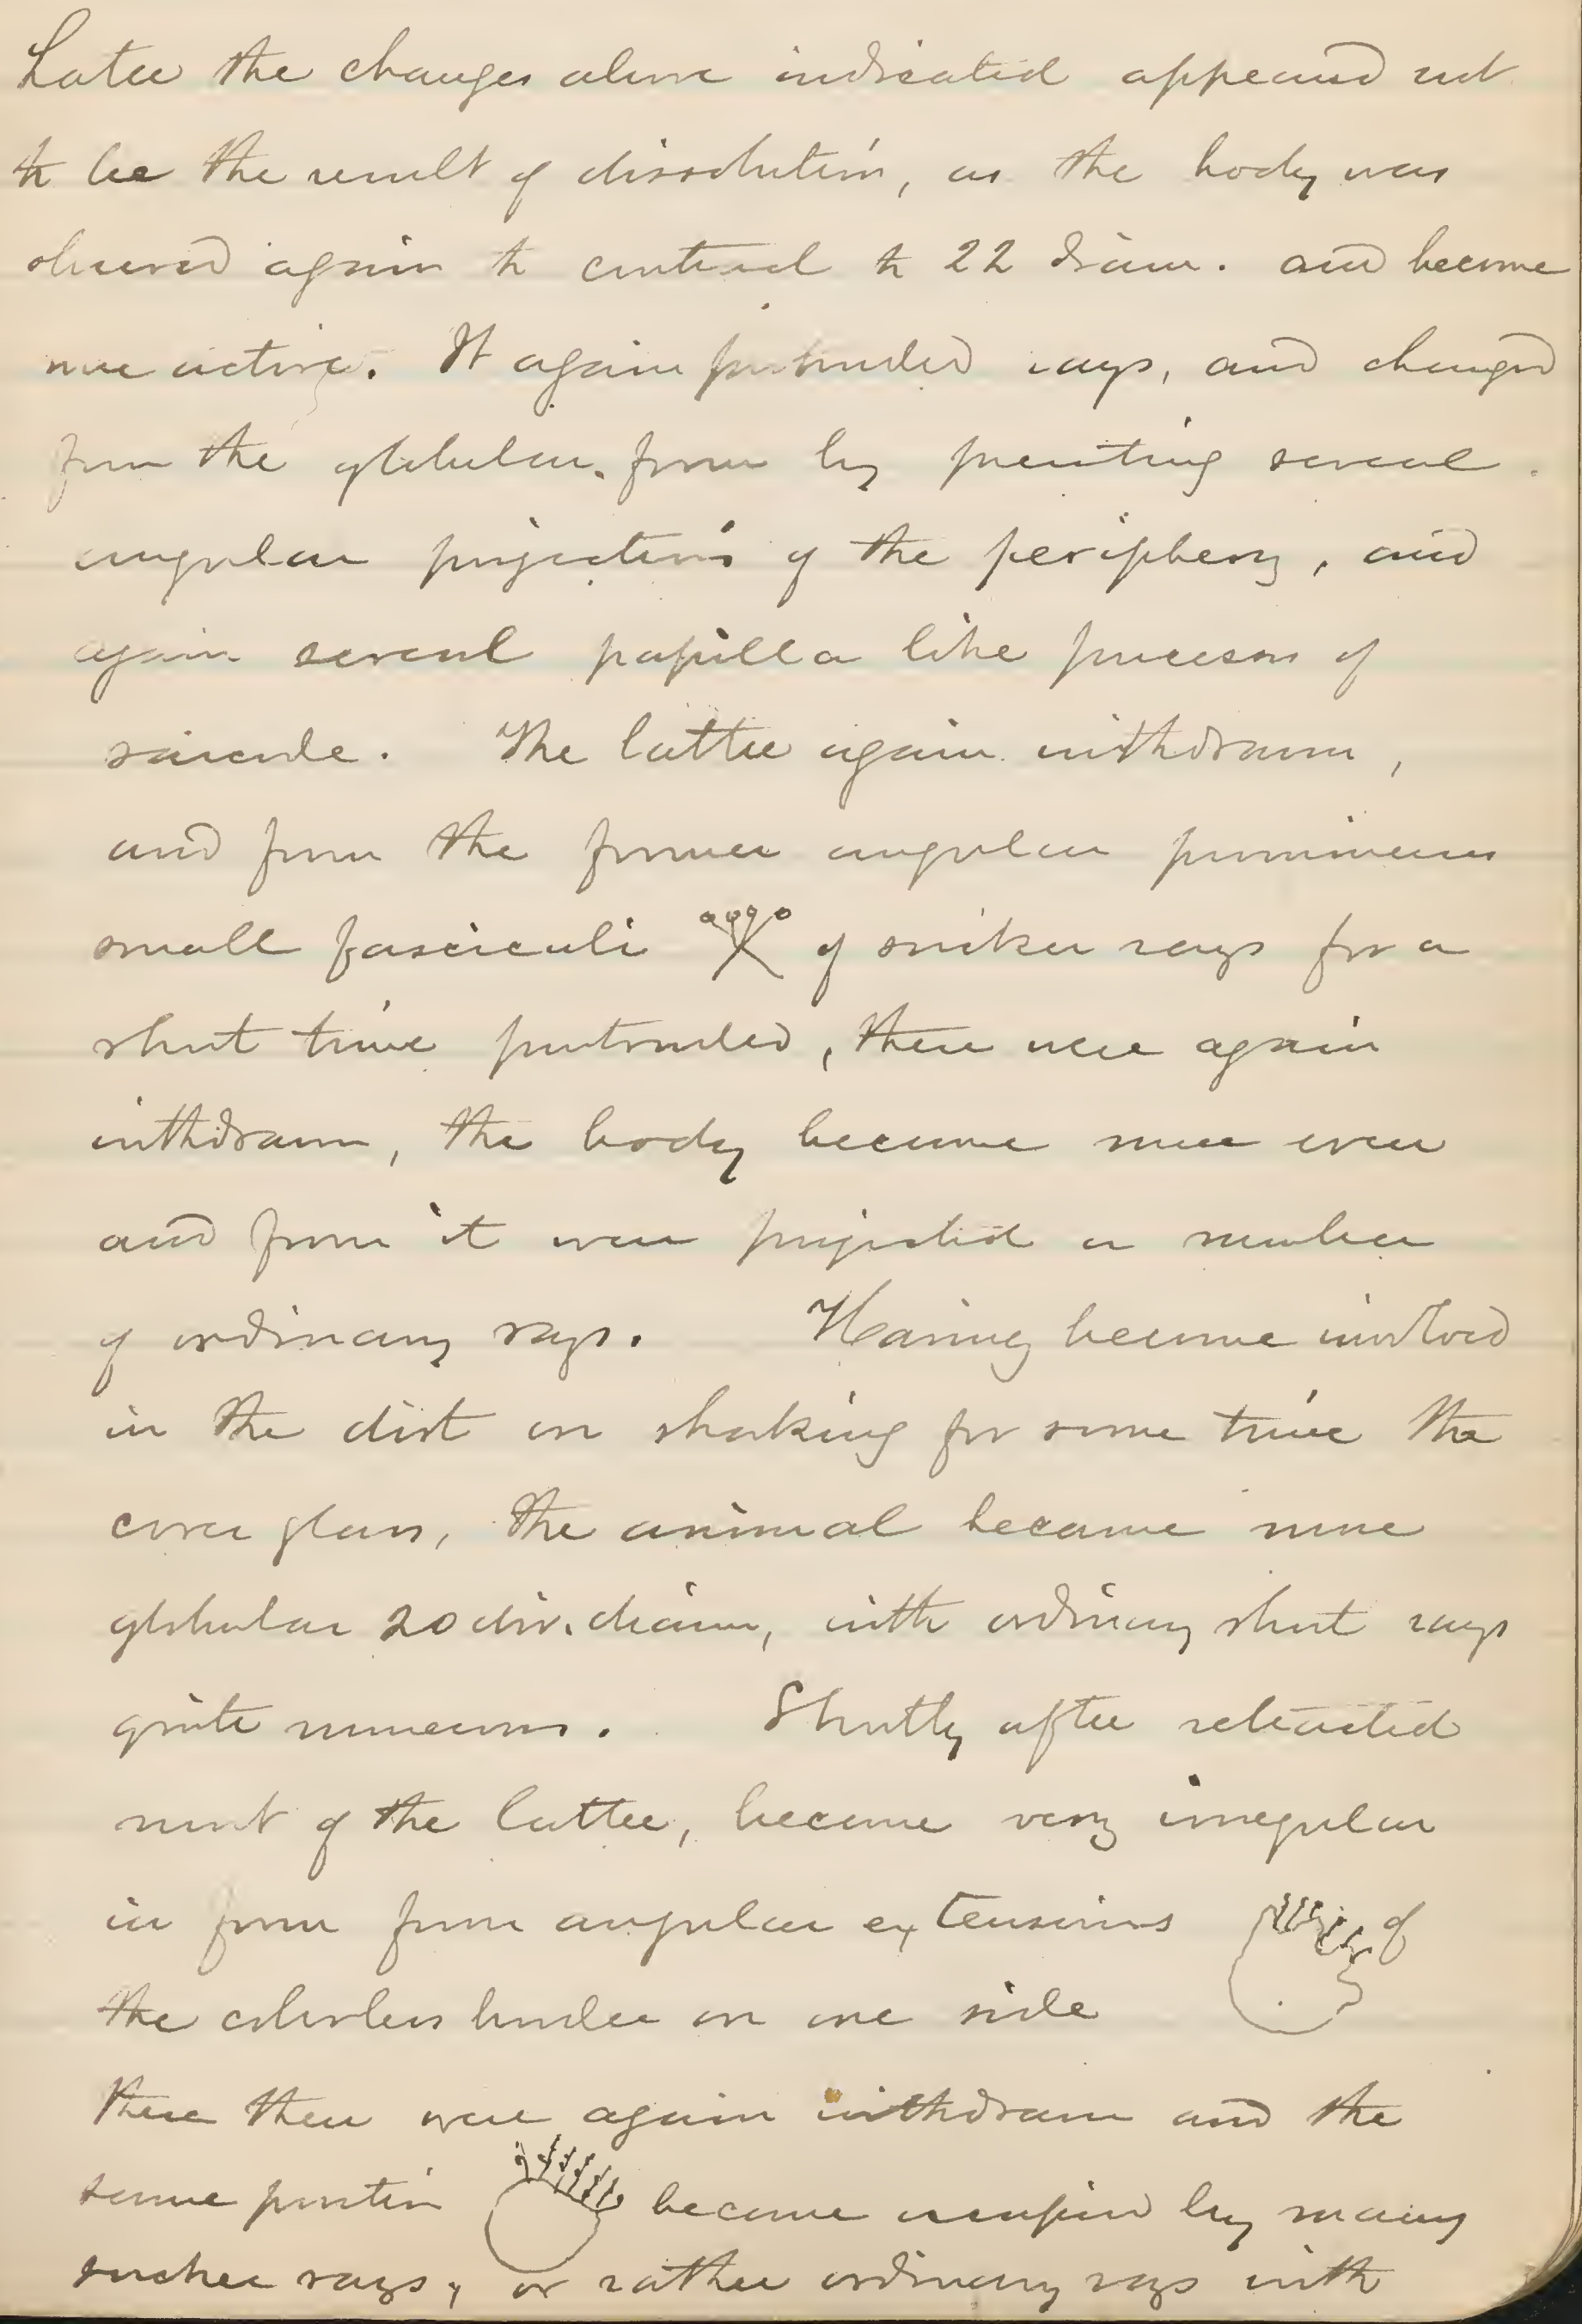 Later the changes above indicated appeared not
to be the result of dissolution, as the body was
observed again to contract to 22 diam. and become
more active. It again protruded rays, and changed
from the globular form by presenting several
angular projections of the periphery, and
again several papilla like processes of
sarcode. The latter again withdrawn,
and from the former angular prominences
small fasciculi of sucker rays for a
short time protruded, these were again
withdrawn, the body became more even
and from it were projected a number
of ordinary rays. Having become involved
in the dirt on shaking for some time the
cover glass, the animal became more
globular 20 div. diam, with ordinary short rays
quite numerous. Shortly after retracted
most of the latter, became very irregular
in form from angular extensions of
the colorless border on one side
These then were again withdrawn and the
same portion became occupied by many
sucker rays, or rather ordinary rays with